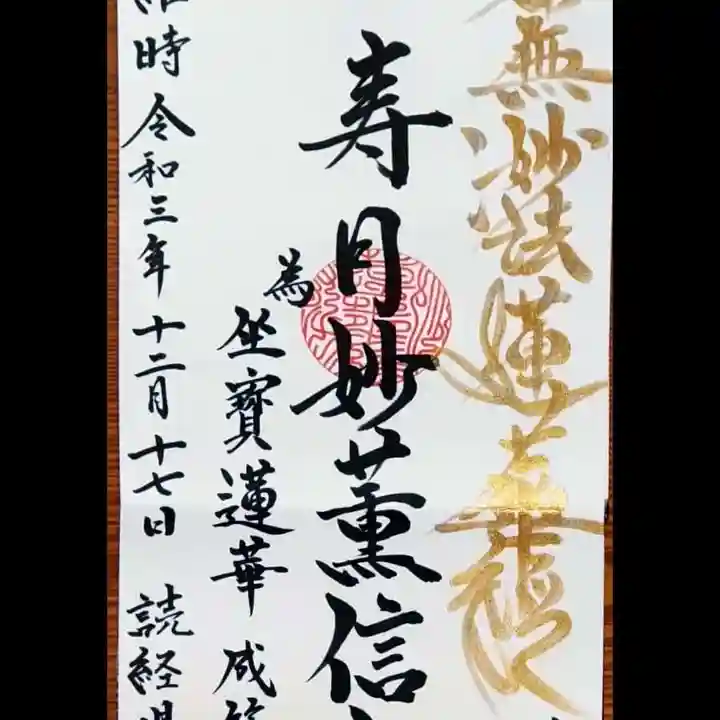 無妙法蓮華経
寿月妙薫信
為
坐寳蓮華 成
時 令和三年 十二月 十七日 読経